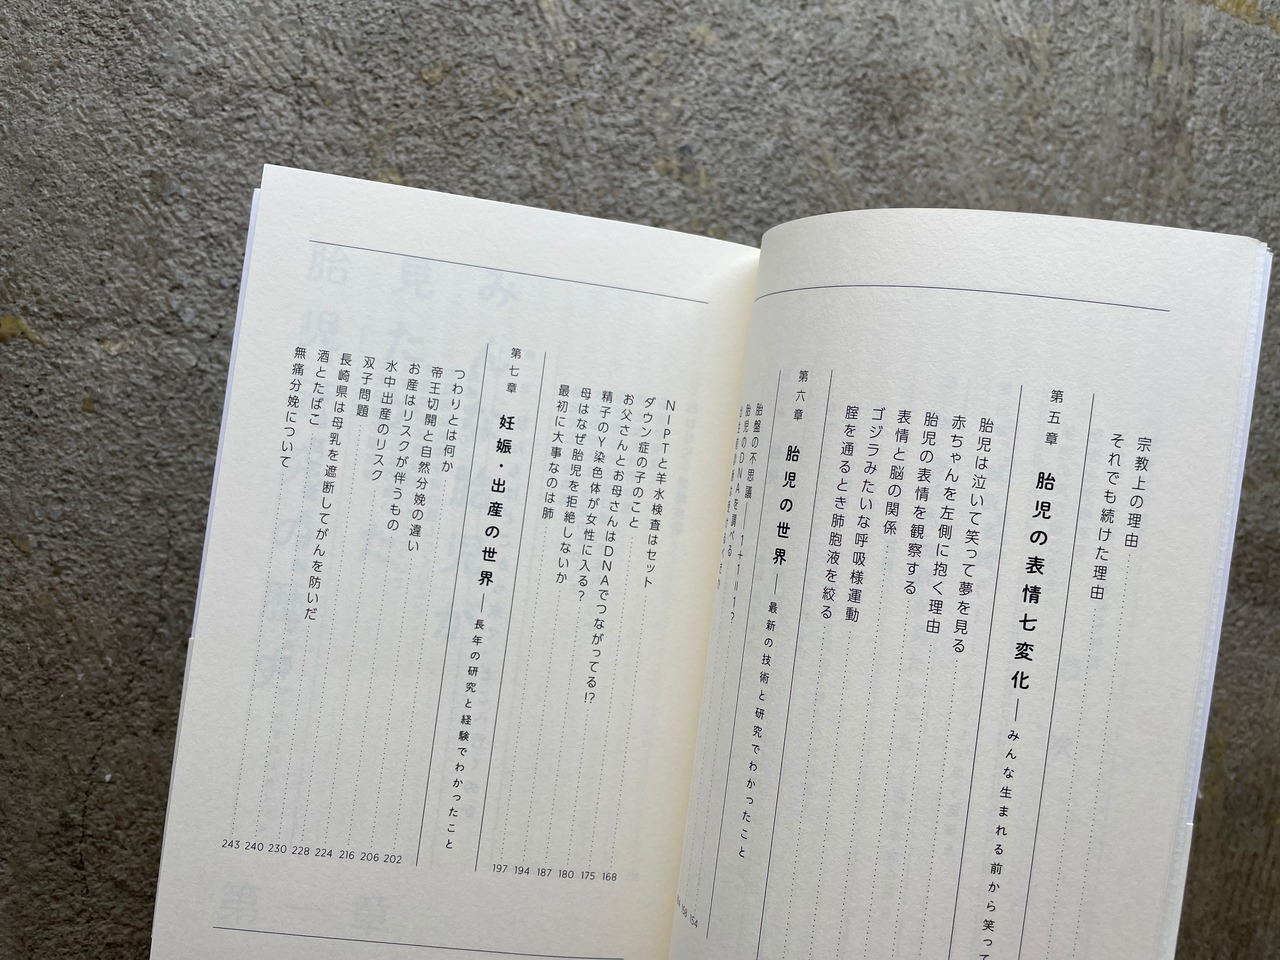 宗教上の理由
それでも続けた理由
第五章 胎児の表情七変化――みんな生まれる前から笑って
胎児は泣いて笑って夢を見る
赤ちゃんを左側に抱く理由
胎児の表情を観察する
表情と脳の関係
ゴジラみたいな呼吸様運動
腟を通るとき肺胞液を絞る
第六章 胎児の世界――最新の技術と研究でわかったこと
胎盤の不思議――1+1=1? 154
胎児のDNAを調べる 158
NIPTと羊水検査はセット 168
ダウン症の子のこと 175
お父さんとお母さんはDNAでつながってる!? 180
精子のY染色体が女性に入る? 187
母はなぜ胎児を拒絶しないか 194
最初に大事なのは肺 197
第七章 妊娠・出産の世界――長年の研究と経験でわかったこと
つわりとは何か 202
帝王切開と自然分娩の違い 206
お産はリスクが伴うもの 216
水中出産のリスク 224
双子問題 228
長崎県は母乳を遮断してがんを防いだ 230
酒とたばこ 240
無痛分娩について 243